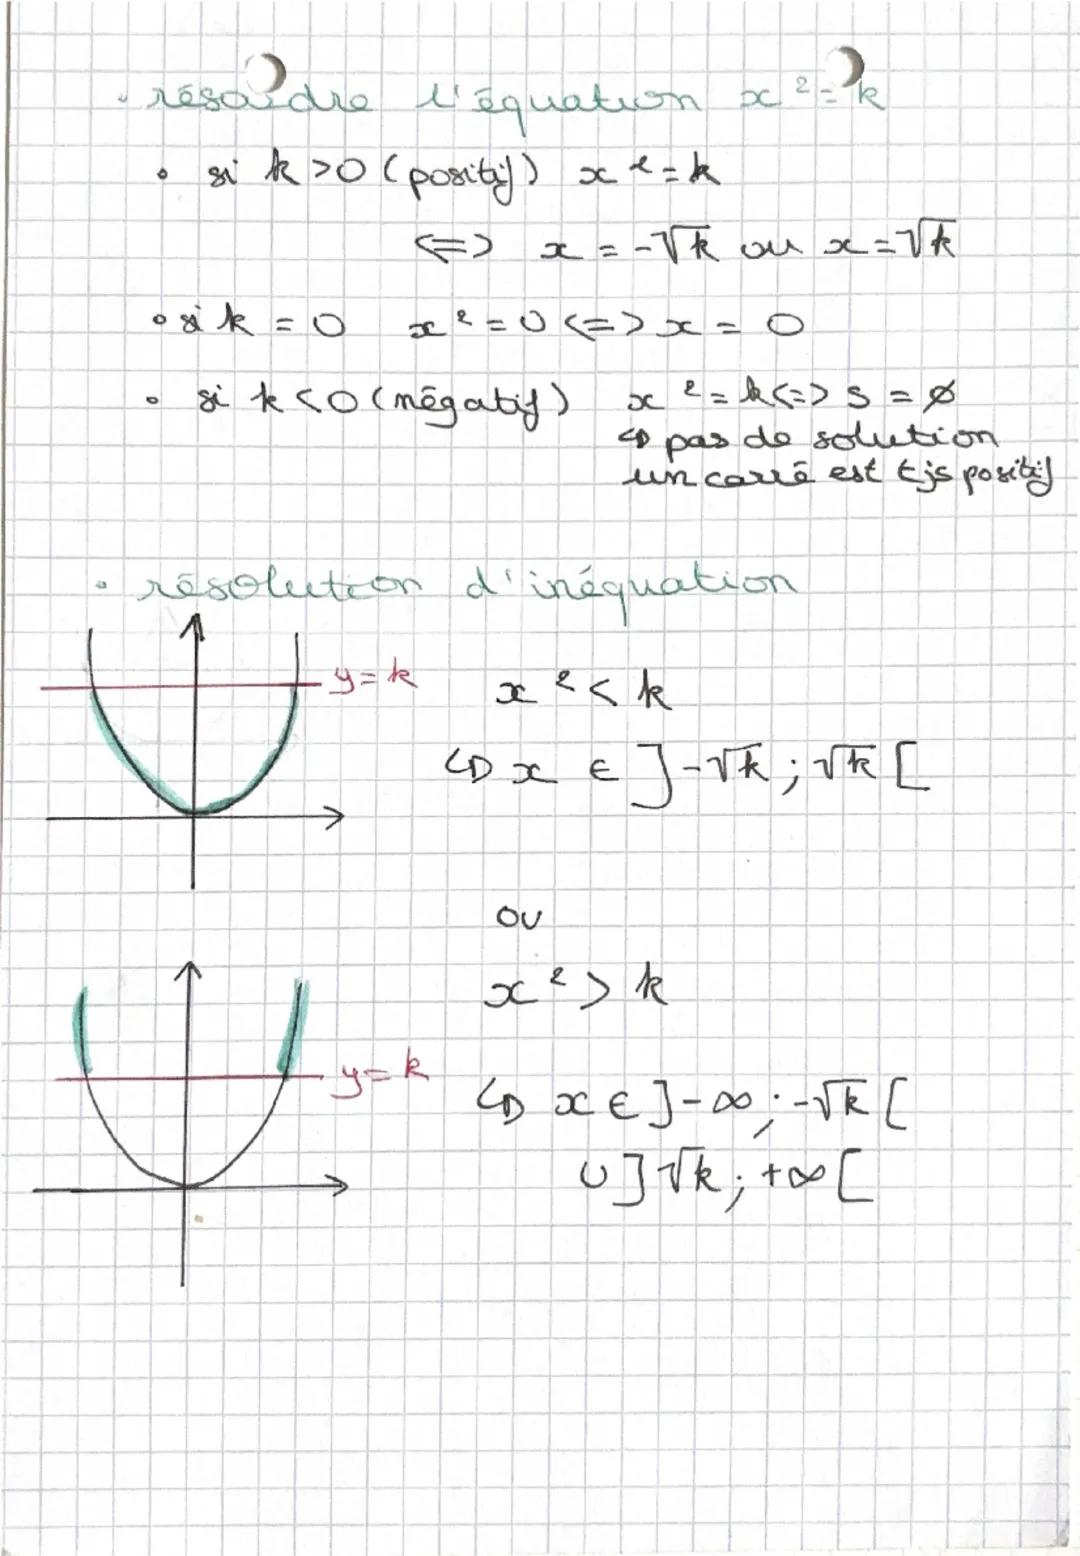 résoudre l'équation x² = k
• si k > 0 (positif) x² = k
<=> x = -√k ou x = √k
• si k = 0 x² = 0 <=> x = 0
• si k < 0 (négatif) x² = k <=> S = ∅
↳ pas de solution
un carré est tjs positif
• résolution d'inéquation
y = k
x² < k
↳ x ∈ ]-√k ; √k [
ou
x² > k
y = k
↳ x ∈ ]-∞ ; -√k [
∪ ] √k ; +∞ [